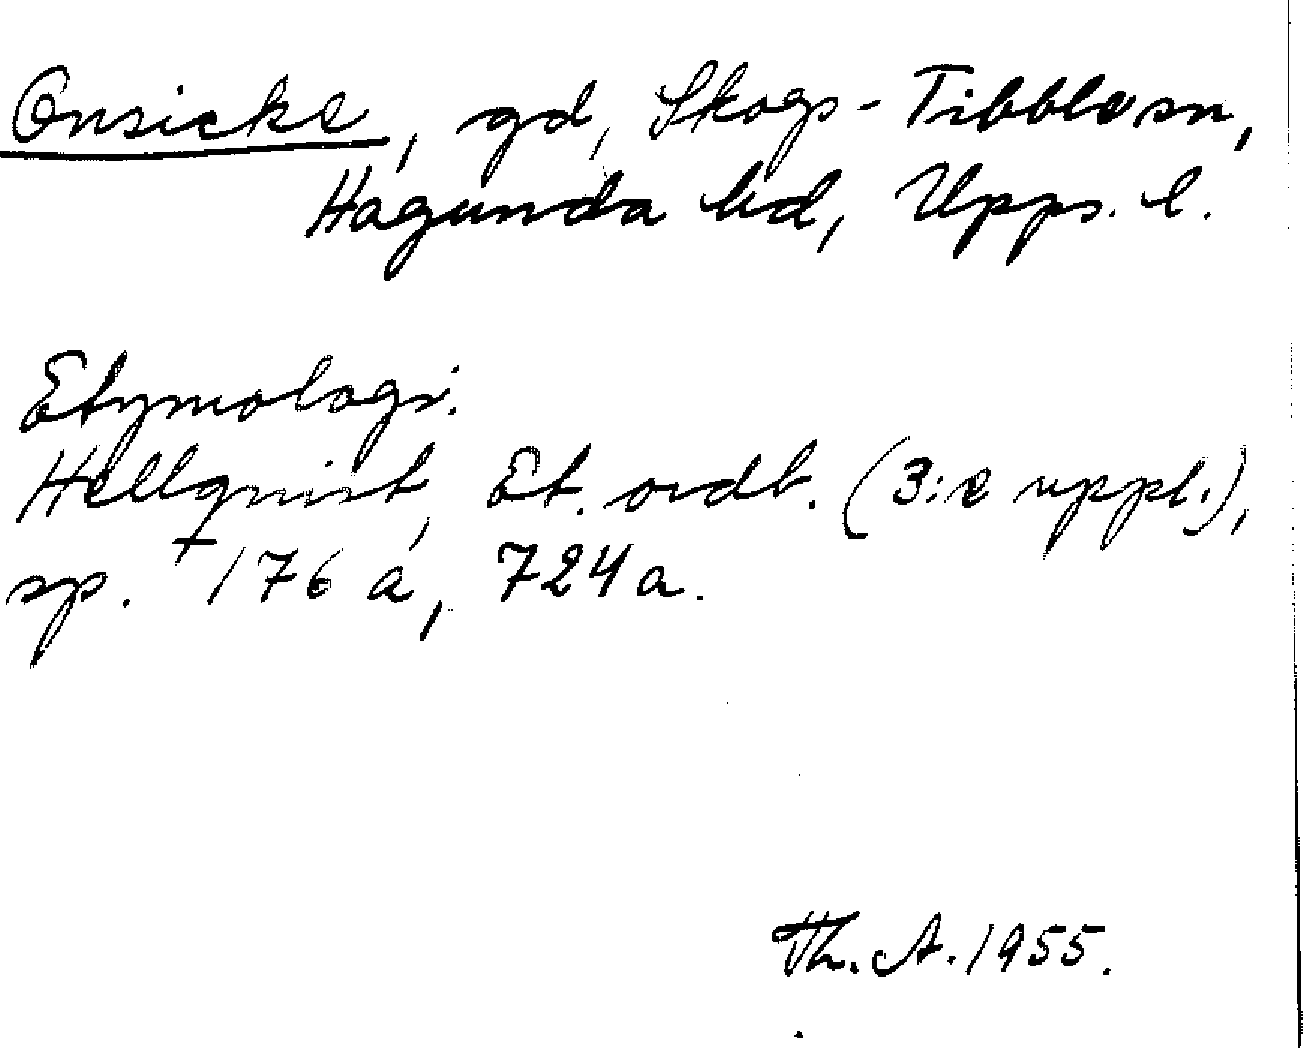 Onsicke, gd, Skogs-Tibble sn,
Hagunda hd, Upps. l.
Etymologi.
Hellquist, Et. ordb. (3:e uppl.),
sp. 176 a, 724 a.
Th. A. 1955.